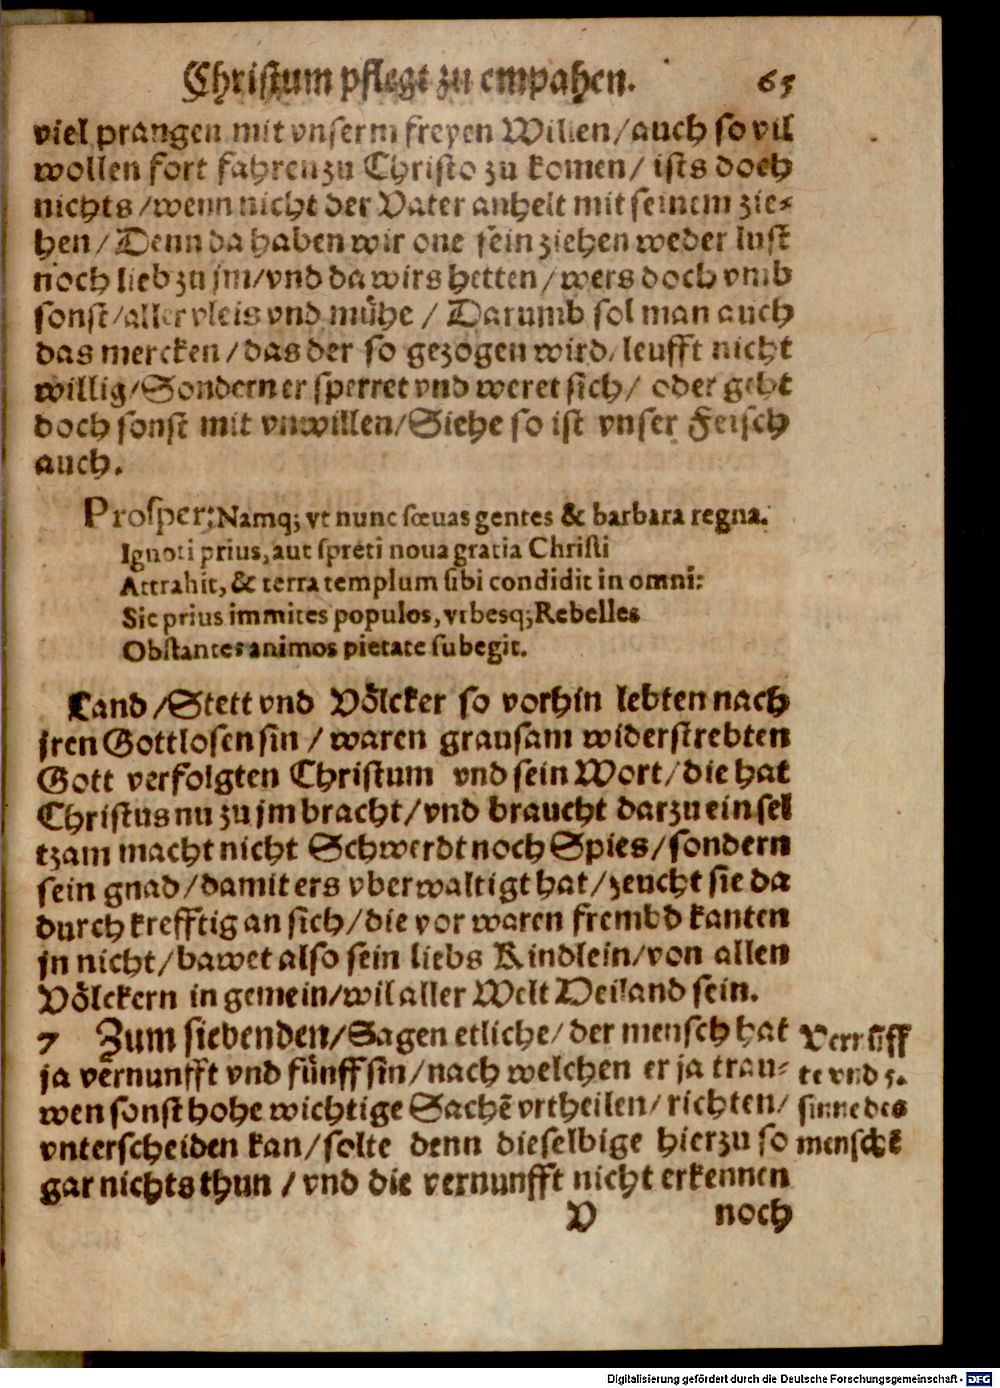 Christum pflegt zu empahen. 65
viel prangen mit vnserm freyen Willen/auch so vil
wollen fort fahren zu Christo zu komen/ ists doch
nichts/wenn nicht der Vater anhelt mit seinem zie-
hen/Denn da haben wir one sein ziehen weder lust
noch lieb zu jm/vnd da wirs hetten/wers doch vmb
sonst/aller vleis vnd mühe / Darumb sol man auch
das mercken/das der so gezogen wird/leufft nicht
willig/Sondern er sperret vnd weret sich/ oder geht
doch sonst mit vnwillen/Siehe so ist vnser Feisch
auch.
Prosper: Namq; vt nunc sœuas gentes & barbara regna.
Ignoti prius, aut spreti noua gratia Christi
Attrahit, & terra templum sibi condidit in omni:
Sic prius immites populos, vrbesq; Rebelles
Obstantes animos pietate subegit.
Land/Stett vnd Völcker so vorhin lebten nach
jren Gottlosen sin / waren grausam widerstrebten
Gott verfolgten Christum vnd sein Wort/die hat
Christus nu zu jm bracht/vnd braucht darzu ein sel
tzam macht nicht Schwerdt noch Spies/sondern
sein gnad/damit ers vberwaltigt hat/zeucht sie da
durch krefftig an sich/die vor waren frembd kanten
jn nicht/bawet also sein liebs Kindlein/von allen
Völckern in gemein/wil aller Welt Heiland sein.
7 Zum siebenden/Sagen etliche/der mensch hat
ja vernunfft vnd fünff sin/nach welchen er ja trau-
wen sonst hohe wichtige Sachē vrtheilen/richten/
vnterscheiden kan/solte denn dieselbige hierzu so
gar nichts thun / vnd die vernunfft nicht erkennen
Vernūff
te vnd 5.
sinne des
menschē
V noch
Digitalisierung gefördert durch die Deutsche Forschungsgemeinschaft - DFG